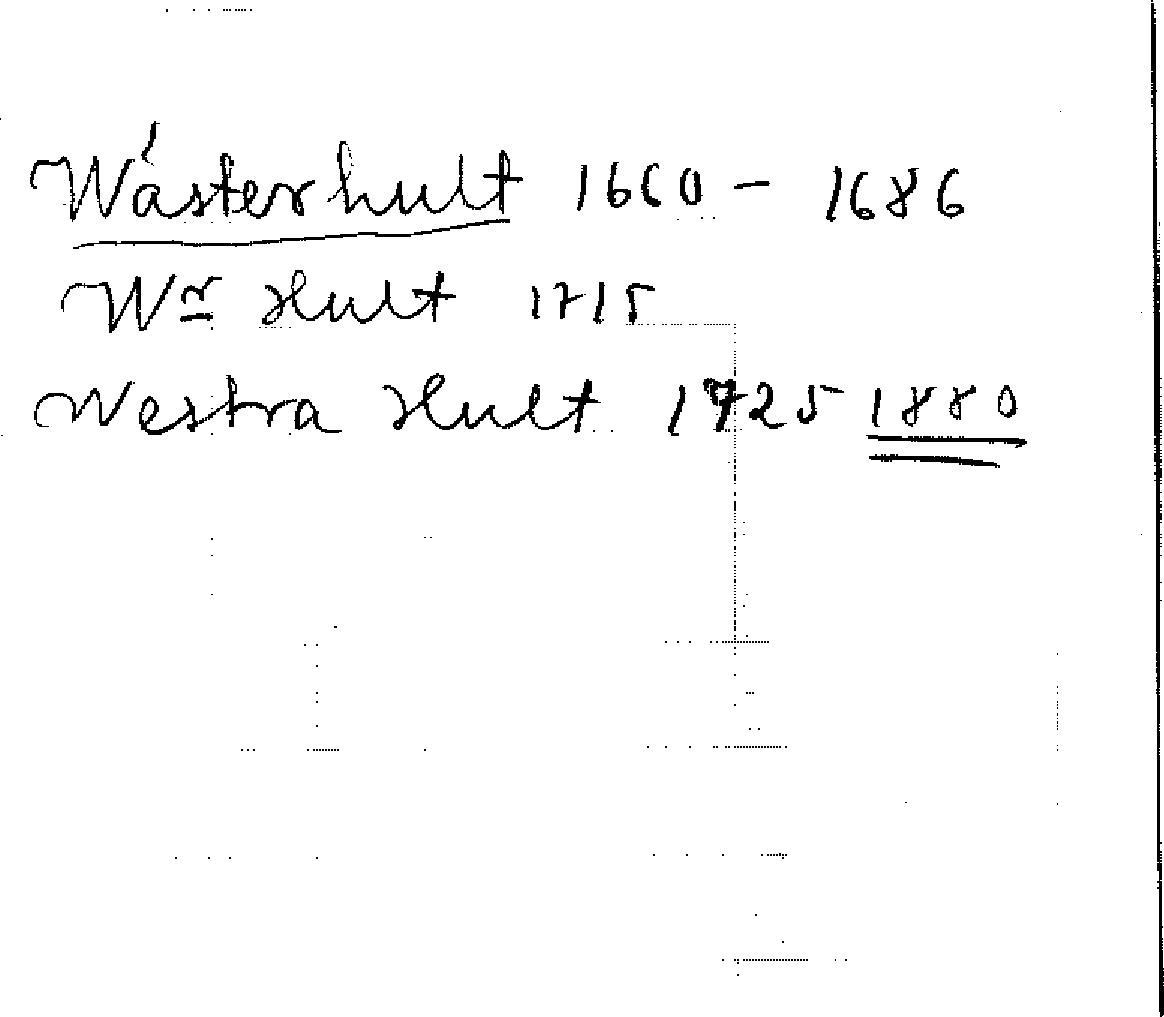 Wästerhult 1660 - 1686
Wr Hult 1715
Westra Hult 1725 1880